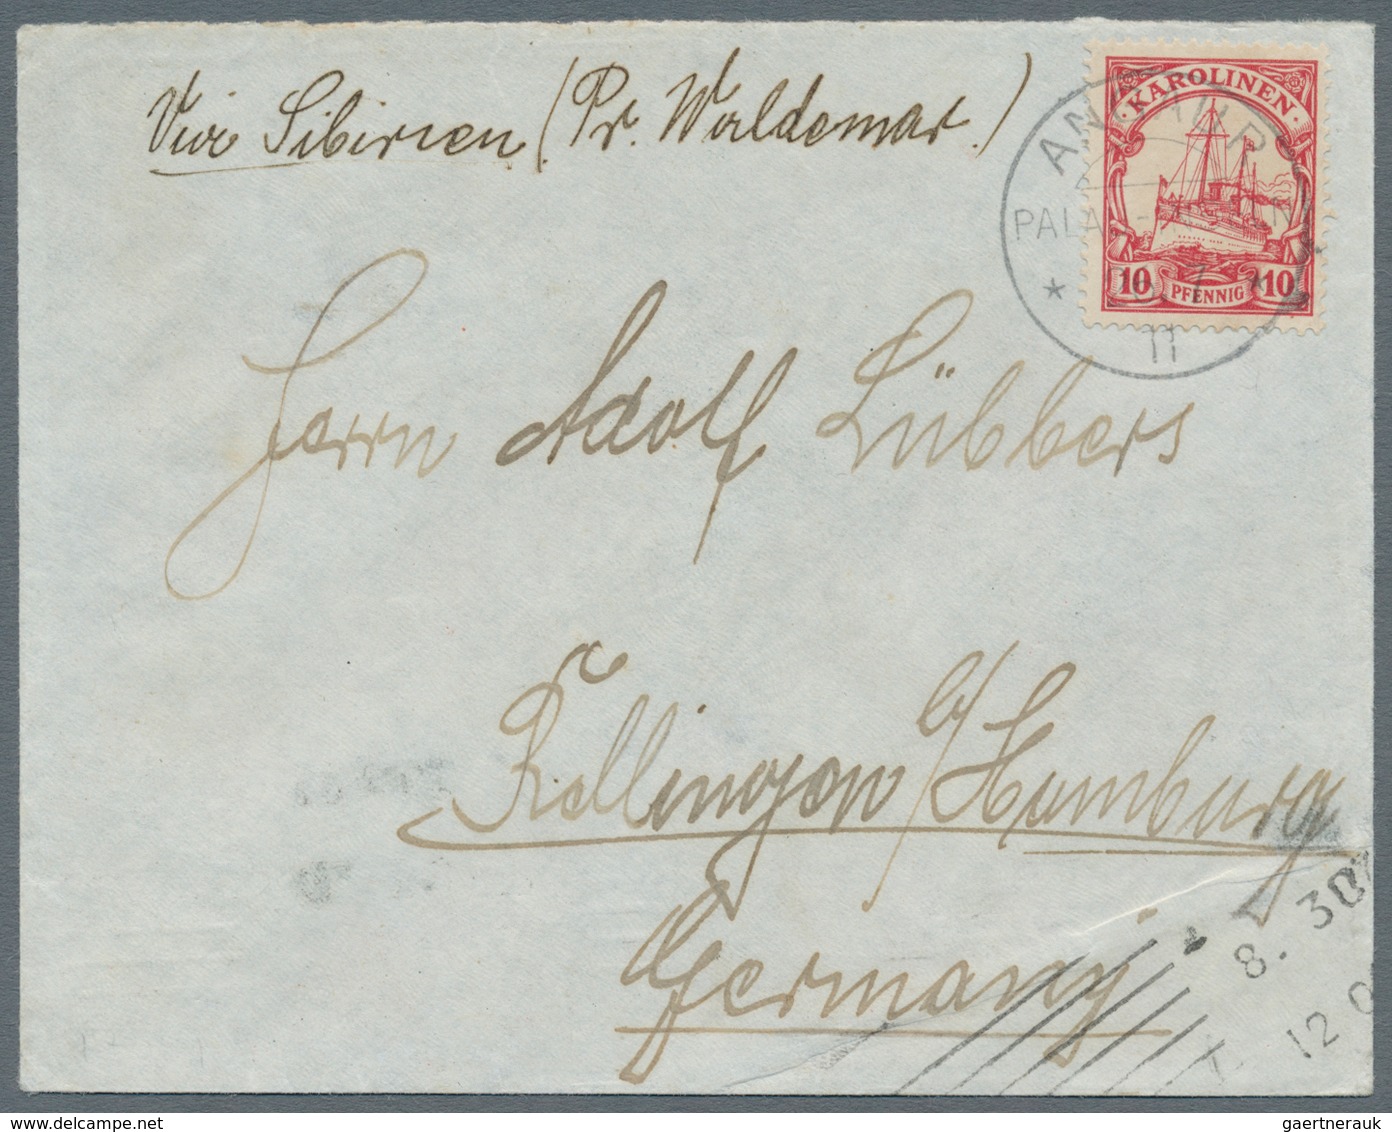 Via Sibirien (Pr. Waldemar.)
KAROLINEN
10 PFENNIG 10
ANGAUR
PALAU-INSELN
* 7 *
11
Herrn Adolf Lübbers
Rellingen b/Hamburg
Germany
8. 30
12 0
delcampe.net
gaertnerauk